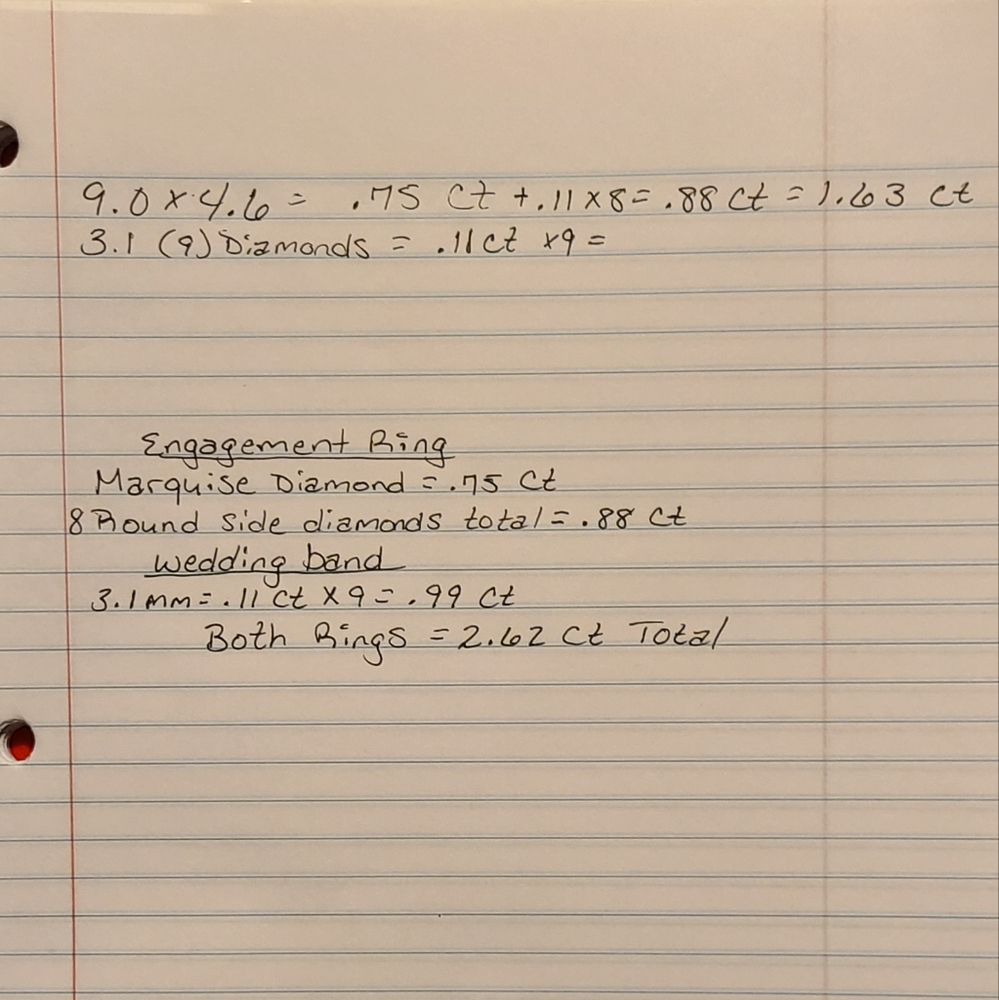 9.0 x 4.6 = .75 ct + .11 x 8 = .88 ct = 1.63 ct
3.1 (9) Diamonds = .11 ct x 9 =
Engagement Ring
Marquise Diamond = .75 ct
8 Round side diamonds total = .88 ct
wedding band
3.1 mm = .11 ct x 9 = .99 ct
Both Rings = 2.62 ct Total